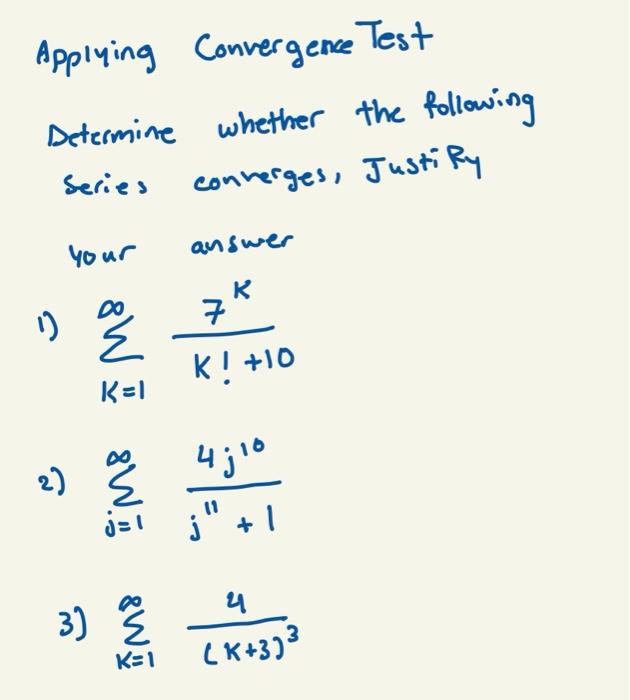 Applying Convergence Test
Determine whether the following
Series converges, Justify
your answer
1) ∞ Σ K=1 7^K / K! +10
2) ∞ Σ j=1 4j^10 / j^11 + 1
3) ∞ Σ K=1 4 / (K+3)^3